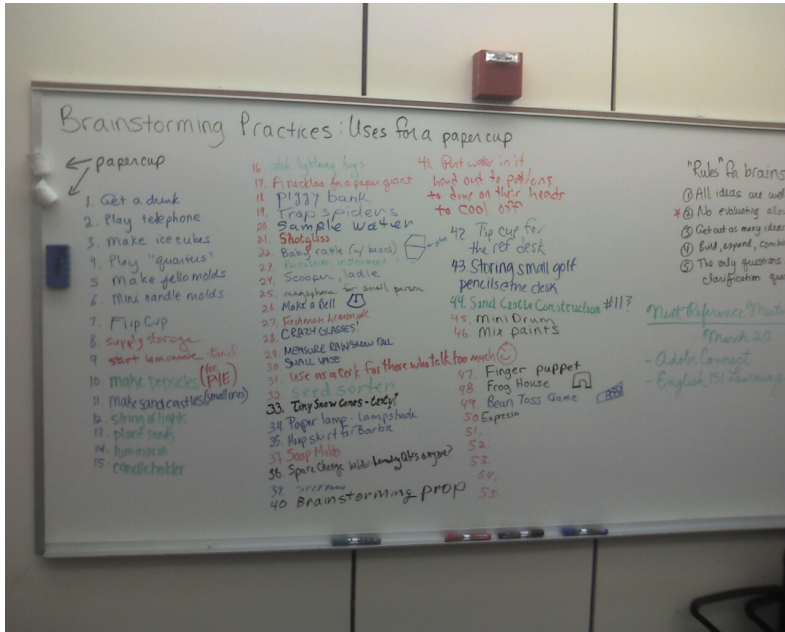 Brainstorming Practices: Uses for a paper cup
paper cup
1. Get a drink
2. Play telephone
3. Make ice cubes
4. Play "quarters"
5 Make jello molds
6. Mini candle molds
7. Flip Cup
8. Supply storage
9. Start lemonade stand
10 make popsicles (for FYE)
11. make sandcastles (small ones)
12. string of lights
13. plant seeds
14. luminaria
15. candle holder
16. catch lightning bugs
17. Fire for a paper giant
18 Piggy bank
19. Trap spiders
20 Sample water
21. Shotglass
22. Baby rattle (w/ beans)
23.
24. Scooper, ladle
25. megaphone for small person
26. Make a Bell
27. Freshman
28. CRAZY GLASSES!
29. MEASURE RAIN/SNOW FALL
30 SMALL VASE
31. use as a cork for those who talk too much
32. seed sorter
33. Tiny Snow Cones -
34. Paper lamp - lampshade
35. Hoop skirt for Barbie
37 Soap Molds
36. Spare Change holder- anyone?
40 Brainstorming prop
41. Put water in it
hand out to patrons
to dump on their heads
to cool off
42 Tip cup for
the ref desk
43. Storing small golf
pencils @ the desk
44. Sand Castle Construction #11?
45. Mini Drum
46. Mix paints
47. Finger puppet
48 Frog House
49 Bean Toss Game
50. Expresso
51.
52.
53.
54.
55.
"Rules" for brains
① All ideas are wel
② No evaluating allo
③ Get out as many ideas
④ Build, expand, combin
⑤ The only questions
clarification que
Next Reference Meeti
March 20
- Adobe Connect
- English 151 Learning